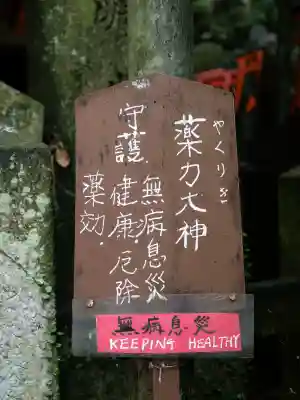 薬力大神
やくりき
守護.無病息災
健康.厄除
薬効.
無病息災
KEEPING HEALTHY